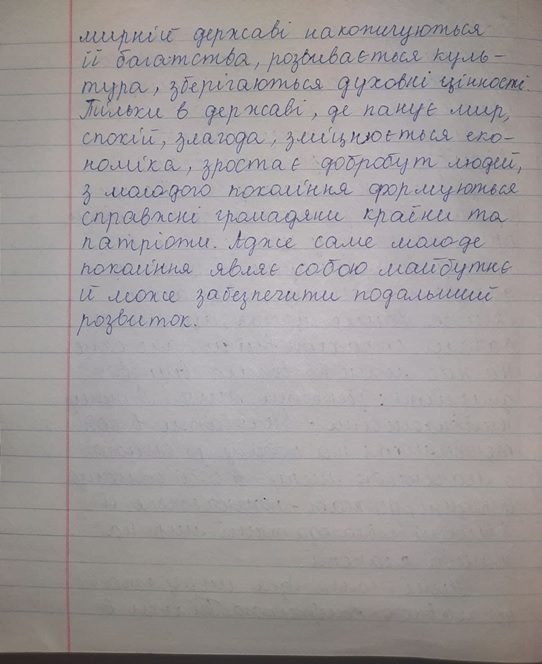 мирній державі накопичуються
її багатства, розвивається куль-
тура, зберігаються духовні цінності.
Тільки в державі, де панує мир,
спокій, злагода, зміцнюється еко-
номіка, зростає добробут людей,
з молодого покоління формуються
справжні громадяни країни та
патріоти. Адже саме молоде
покоління являє собою майбутнє
й може забезпечити подальший
розвиток.